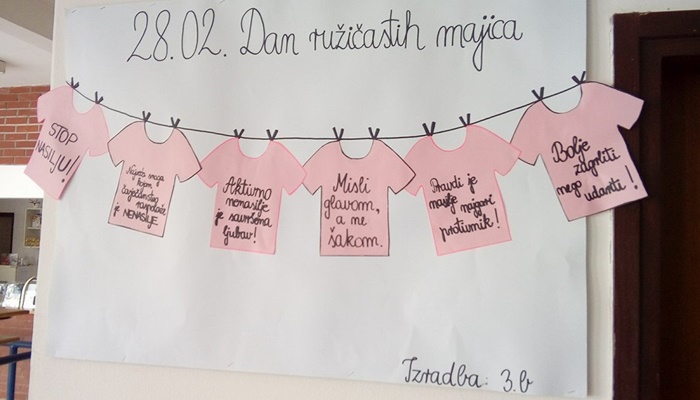 28.02. Dan ružičastih majica
STOP
NASILJU!
Najveća snaga
kojom
čovječanstvo
raspolaže
je NENASILJE
Aktivno
nenasilje
je savršena
ljubav!
Misli
glavom,
a ne
šakom.
Pravdi je
nasilje najgori
protivnik!
Bolje
zagrliti
nego
udariti!
Izradba: 3.b